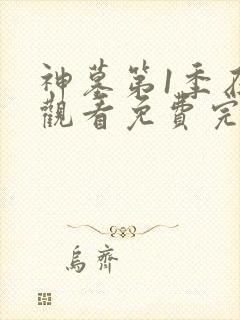 神墓第1季
觀看免費完
烏齊